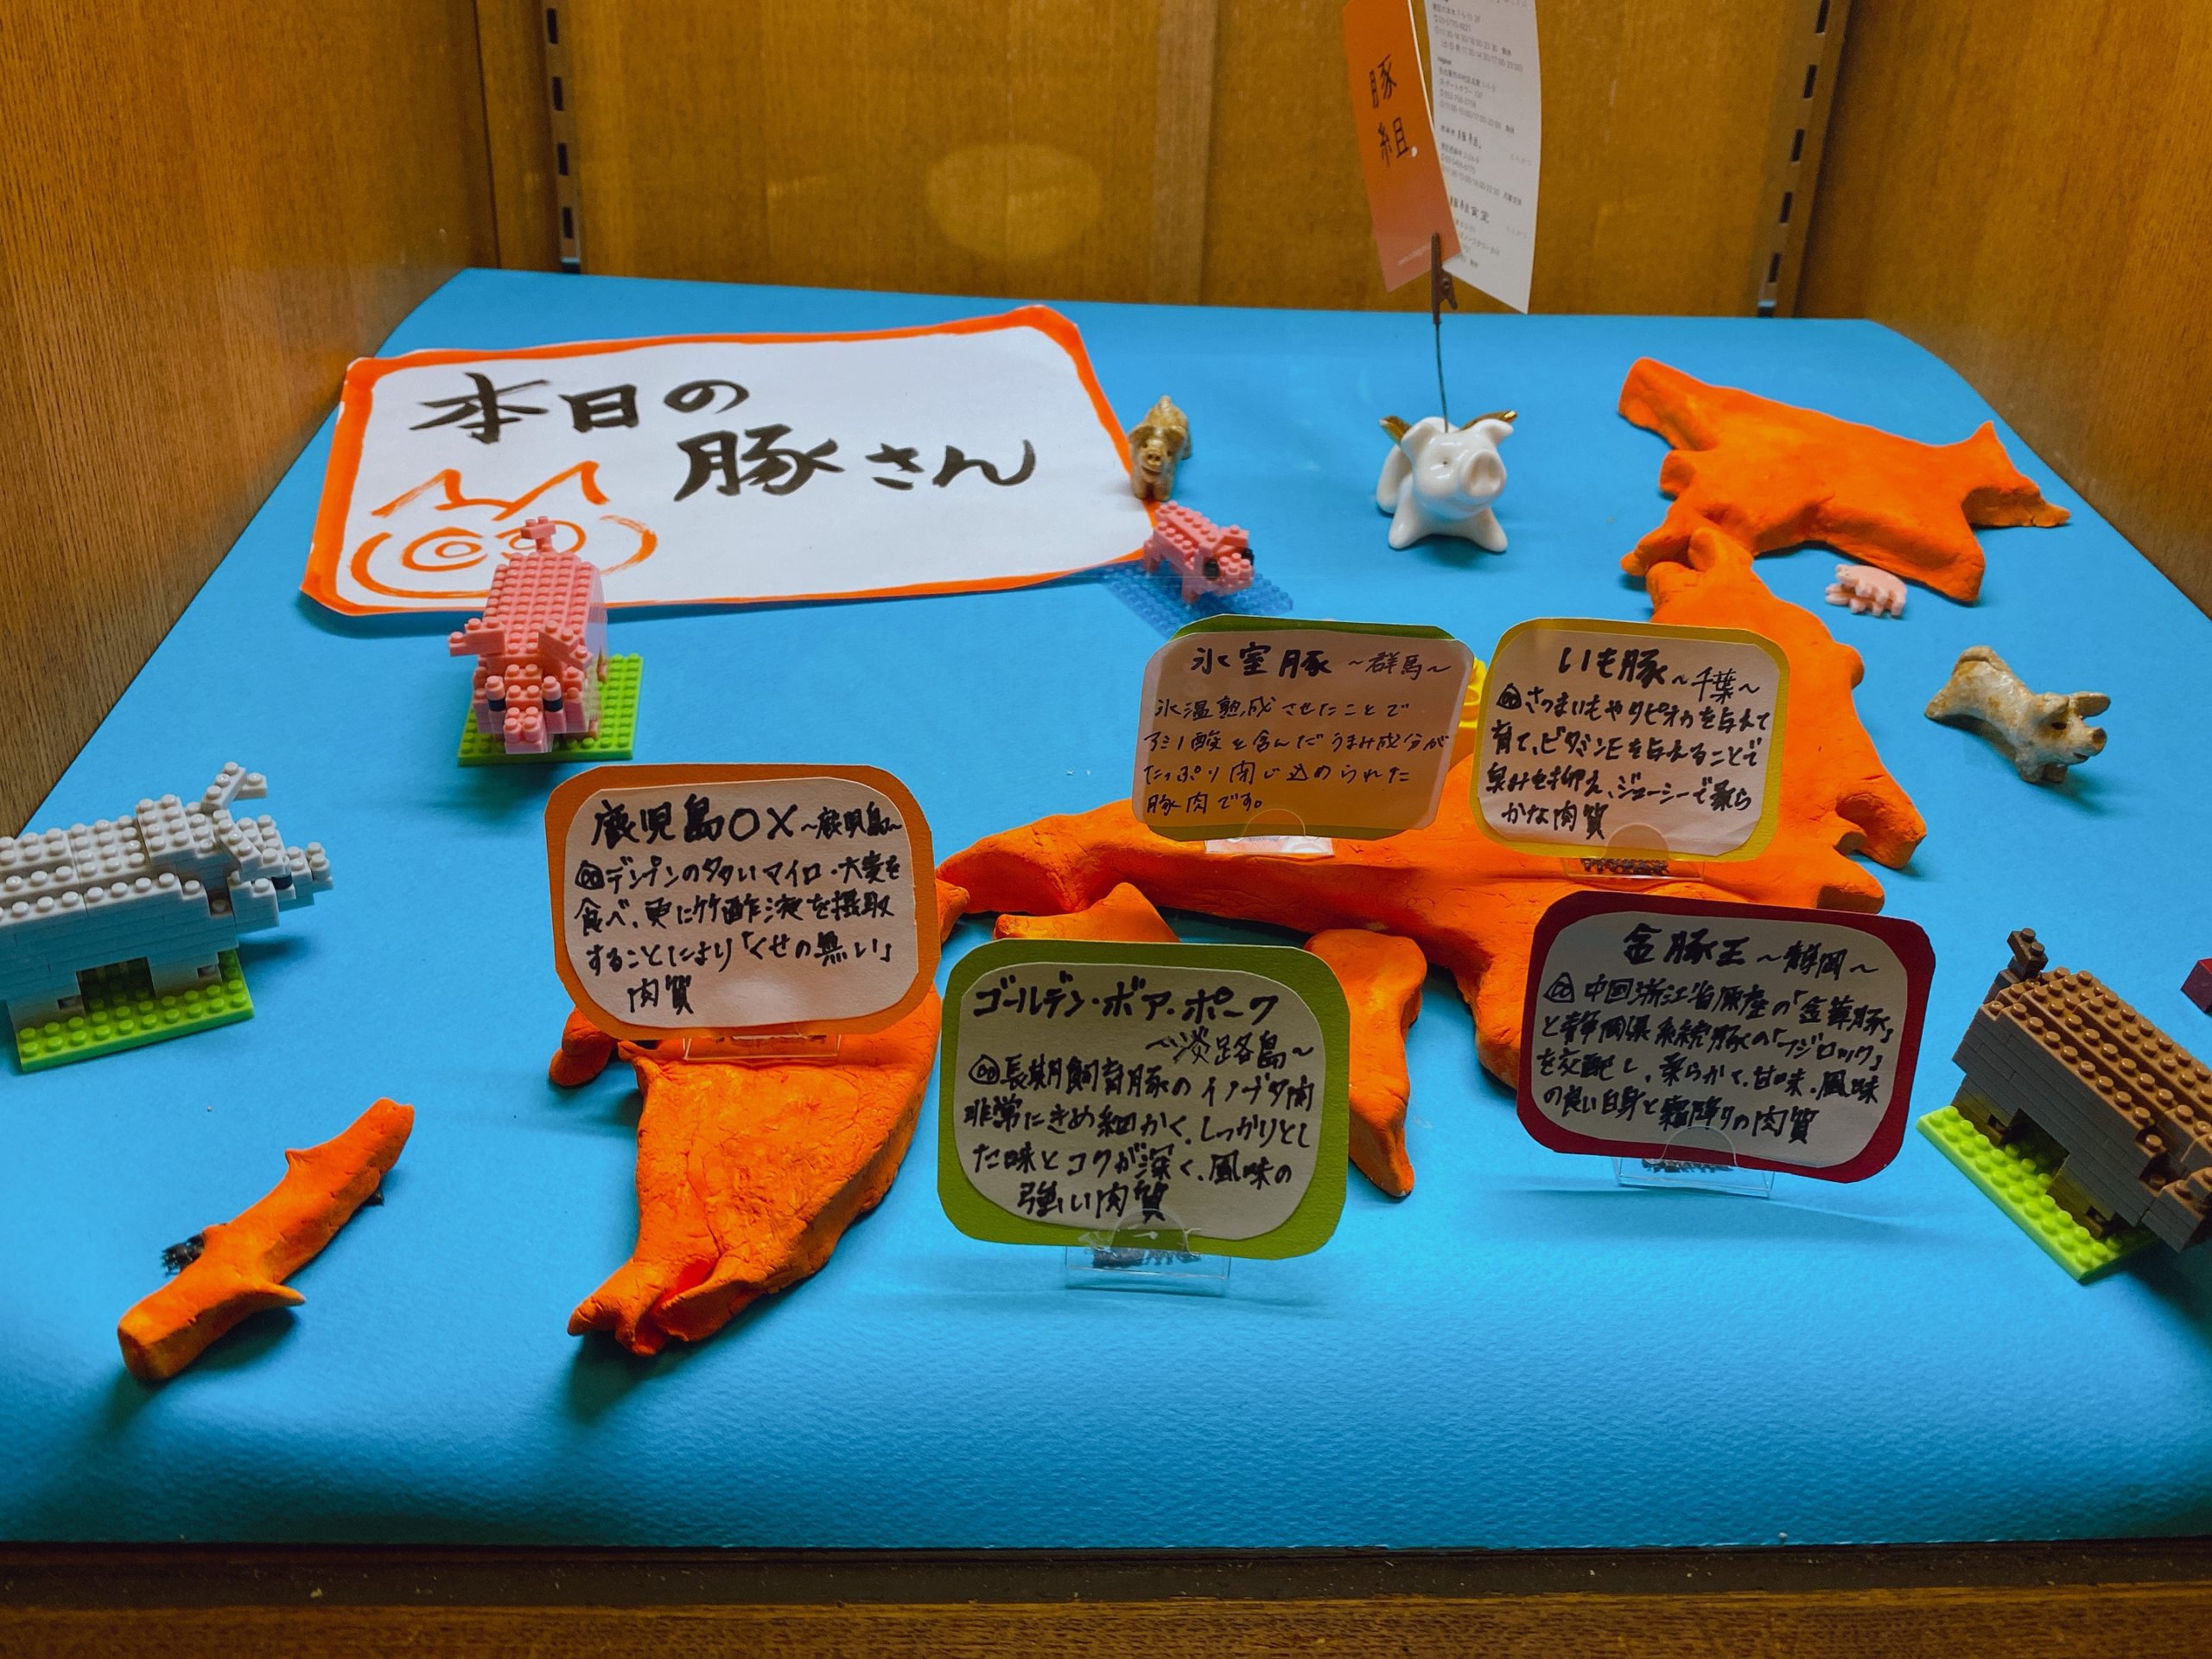 本日の
豚さん
豚
組。
氷室豚 ～群馬～
氷温熟成させたことで
アミノ酸を含んだうまみ成分が
たっぷり閉じ込められた
豚肉です。
いも豚～千葉～
さつまいもやタピオカを与えて
育て、ビタミンEを与えることで
臭みを抑え、ジューシーで柔ら
かな肉質
鹿児島OX～鹿児島～
デンプンの多いマイロ・大麦を
食べ、更に竹酢液を摂取
することにより「くせの無い」
肉質
ゴールデン・ボア・ポーク
～淡路島～
長期飼育豚のイノブタ肉
非常にきめ細かく、しっかりとし
た味とコクが深く、風味の
強い肉質
金豚王～静岡～
中国浙江省原産の「金華豚」
と静岡県系統豚の「フジロック」
を交配し、柔らかく、甘味・風味
の良い白身と霜降りの肉質